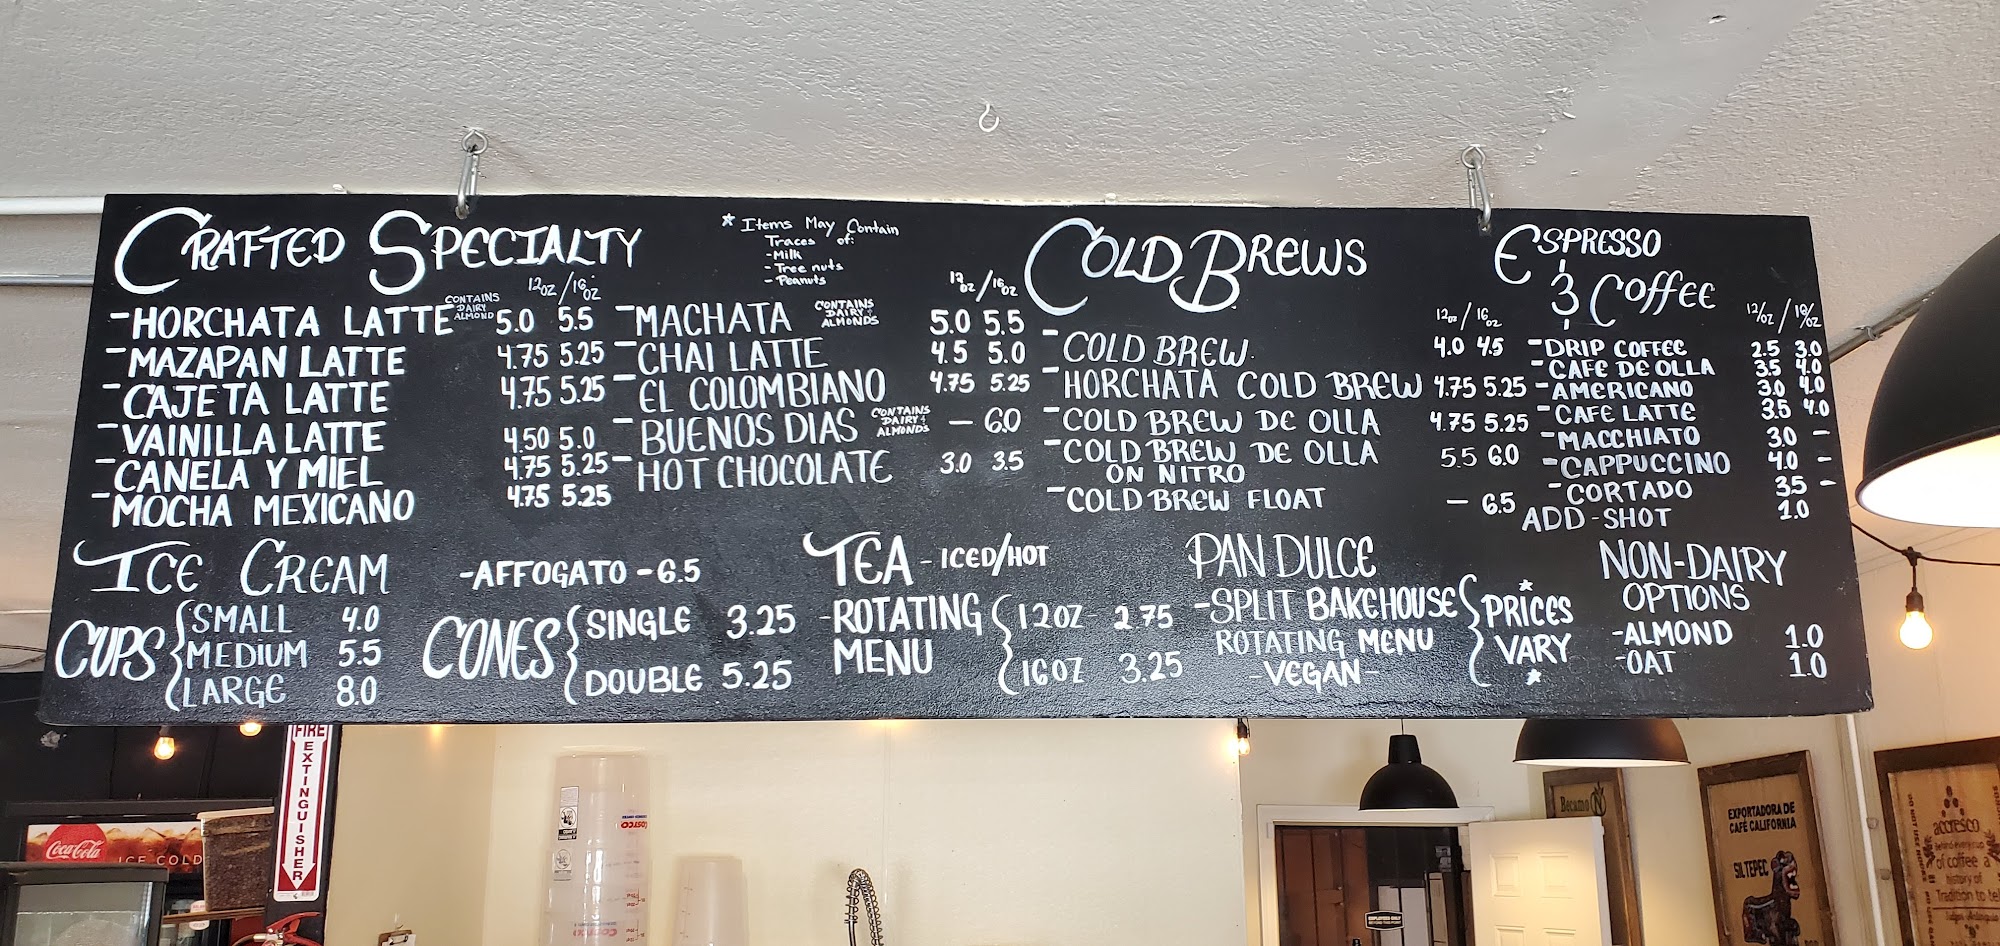 CRAFTED SPECIALTY
12oz/16oz
-HORCHATA LATTE CONTAINS DAIRY ALMOND 5.0 5.5
-MAZAPAN LATTE 4.75 5.25
-CAJETA LATTE 4.75 5.25
-VAINILLA LATTE 4.50 5.0
-CANELA Y MIEL 4.75 5.25
-MOCHA MEXICANO 4.75 5.25
* Items May Contain
Traces of:
-Milk
-Tree nuts
-Peanuts
12oz/16oz
-MACHATA CONTAINS DAIRY + ALMONDS 5.0 5.5
-CHAI LATTE 4.5 5.0
-EL COLOMBIANO 4.75 5.25
-BUENOS DIAS CONTAINS DAIRY + ALMONDS — 6.0
-HOT CHOCOLATE 3.0 3.5
COLD BREWS
12oz/16oz
-COLD BREW 4.0 4.5
-HORCHATA COLD BREW 4.75 5.25
-COLD BREW DE OLLA 4.75 5.25
-COLD BREW DE OLLA 5.5 6.0
ON NITRO
-COLD BREW FLOAT — 6.5
ESPRESSO
& COFFEE
12/oz/16/oz
-DRIP COFFEE 2.5 3.0
-CAFE DE OLLA 3.5 4.0
-AMERICANO 3.0 4.0
-CAFE LATTE 3.5 4.0
-MACCHIATO 3.0 -
-CAPPUCCINO 4.0 -
-CORTADO 3.5 -
ADD-SHOT 1.0
ICE CREAM
-AFFOGATO - 6.5
CUPS
SMALL 4.0
MEDIUM 5.5
LARGE 8.0
CONES
SINGLE 3.25
DOUBLE 5.25
TEA - ICED/HOT
-ROTATING
MENU
12OZ 2.75
16OZ 3.25
PAN DULCE
-SPLIT BAKEHOUSE
ROTATING MENU
-VEGAN-
*
PRICES
VARY
*
NON-DAIRY
OPTIONS
-ALMOND 1.0
-OAT 1.0
FIRE
EXTINGUISHER
Coca-Cola
ICE COLD
EXPORTADORA DE
CAFÉ CALIFORNIA
SILTEPEC
Becamo
accresco
Behind every cup
of coffee a
history of
Tradition to tel
EMPLOYEES ONLY